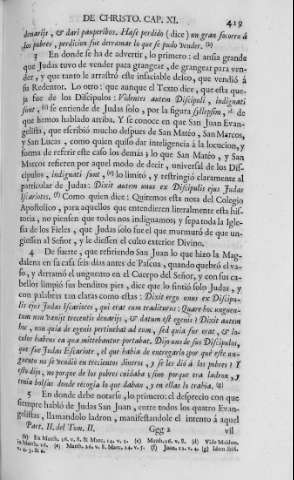 DE CHRISTO. CAP. XI. 419
denarijs, & dari pauperibus. Hase perdido (dice) un gran socorro à
los pobres, perdicion fue derramar lo que se pudo vender. (b)
3 En donde se ha de advertir, lo primero: el ansia grande
que Judas tuvo de vender para grangear, de grangear para ven-
der, y que tanto le arrastrò este insaciable deseo, que vendiò à
su Redentor. Lo otro: que aunque el Texto dice, que esta que-
ja fue de los Discipulos: Videntes autem Discipuli, indignati
sunt, (c) se entiende de Judas solo, por la figura syllepsim, (d) de
que hemos hablado arriba. Y se conoce en que San Juan Evan-
gelista, que escribiò mucho despues de San Matèo, San Marcos,
y San Lucas, como quien quiso dar inteligencia à la locucion, y
forma de referir este caso los demàs; lo que San Matèo, y San
Marcos refieren por aquel modo de decir, universal de los Dis-
cipulos, indignati sunt, (e) lo limitò, y restringiò claramente al
particular de Judas: Dixit autem unus ex Discipulis ejus Judas
Iscariotes. (f) Como quien dice: Quitemos esta nota del Colegio
Apostolico, para aquellos que entendieren literalmente esta his-
toria, no piensen que todos nos indignamos, y sepa toda la Igle-
sia de los Fieles, que Judas solo fue el que murmurò de que un-
giessen al Señor, y le diessen el culto exterior Divino.
4 De suerte, que refiriendo San Juan lo que hizo la Mag-
dalena en su casa seis dias antes de Pascua, quando quebrò el va-
so, y derramò el unguento en el Cuerpo del Señor, y con sus ca-
bellos limpiò sus benditos pies, dice que lo sintiò solo Judas, y
con palabras tan claras como estas: Dixit ergo unus ex Discipu-
lis ejus Judas Iscariotes, qui erat eum traditurus: Quare hoc unguen-
tum non vænijt trecentis denarijs, & datum est egenis? Dixit autem
hoc, non quia de egenis pertinebat ad eum, sed quia fur erat, & lo-
culos habens ea quæ mittebantur portabat. Dijo uno de sus Discipulos,
que fue Judas Iscariote, el que havia de entregarlo: por què este un-
guento no se vendiò en trecientos dineros, y se les diò à los pobres? Y
esto dijo, no porque de los pobres cuidaba; sino porque era ladron, y
tenia bolsas donde recogia lo que daban, y en ellas lo traìa. (g)
5 En donde debe notarse, lo primero: el desprecio con que
siempre hablò de Judas San Juan, entre todos los quatro Evan-
gelistas, llamandolo ladron, manifestandole el intento à aquel
Part. II. del Tom. II. Ggg 2 vil